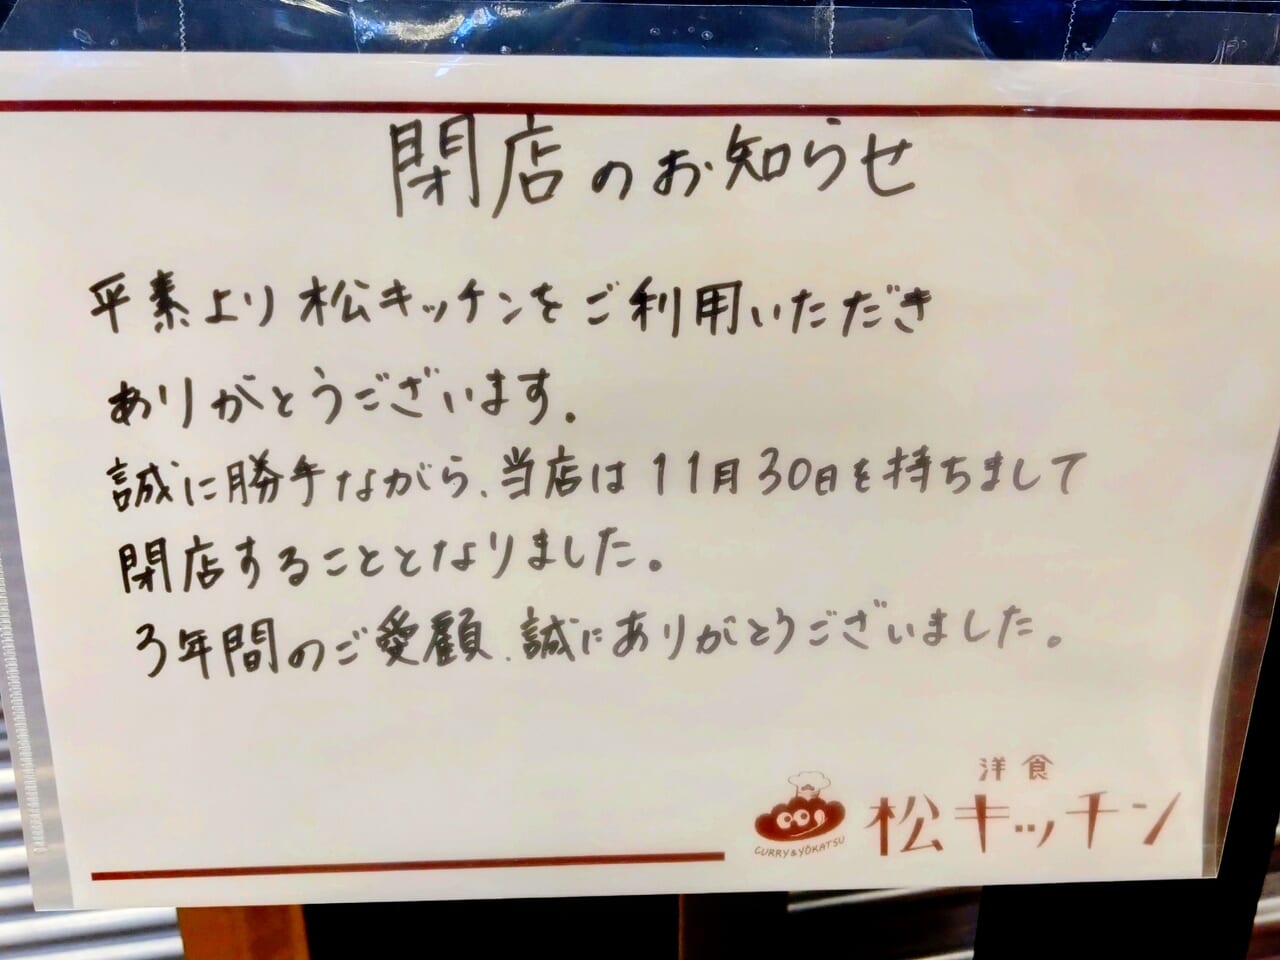 閉店のお知らせ
平素より松キッチンをご利用いただき
ありがとうございます。
誠に勝手ながら、当店は11月30日を持ちまして
閉店することとなりました。
3年間のご愛顧、誠にありがとうございました。
洋食
松キッチン
CURRY&YŌKATSU